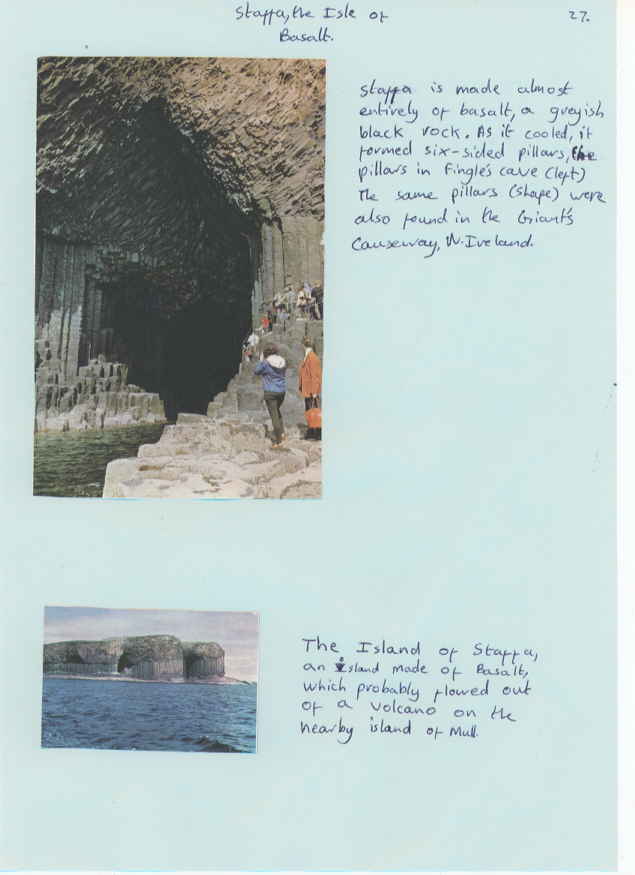 Staffa, the Isle of
Basalt.
27.
Staffa is made almost
entirely of basalt, a greyish
black rock. As it cooled, it
formed six-sided pillars, the
pillars in Fingle's cave (left)
The same pillars (shape) were
also found in the Giant's
Causeway, N. Ireland.
The Island of Staffa,
an island made of Basalt,
which probably flowed out
of a volcano on the
nearby island of Mull.